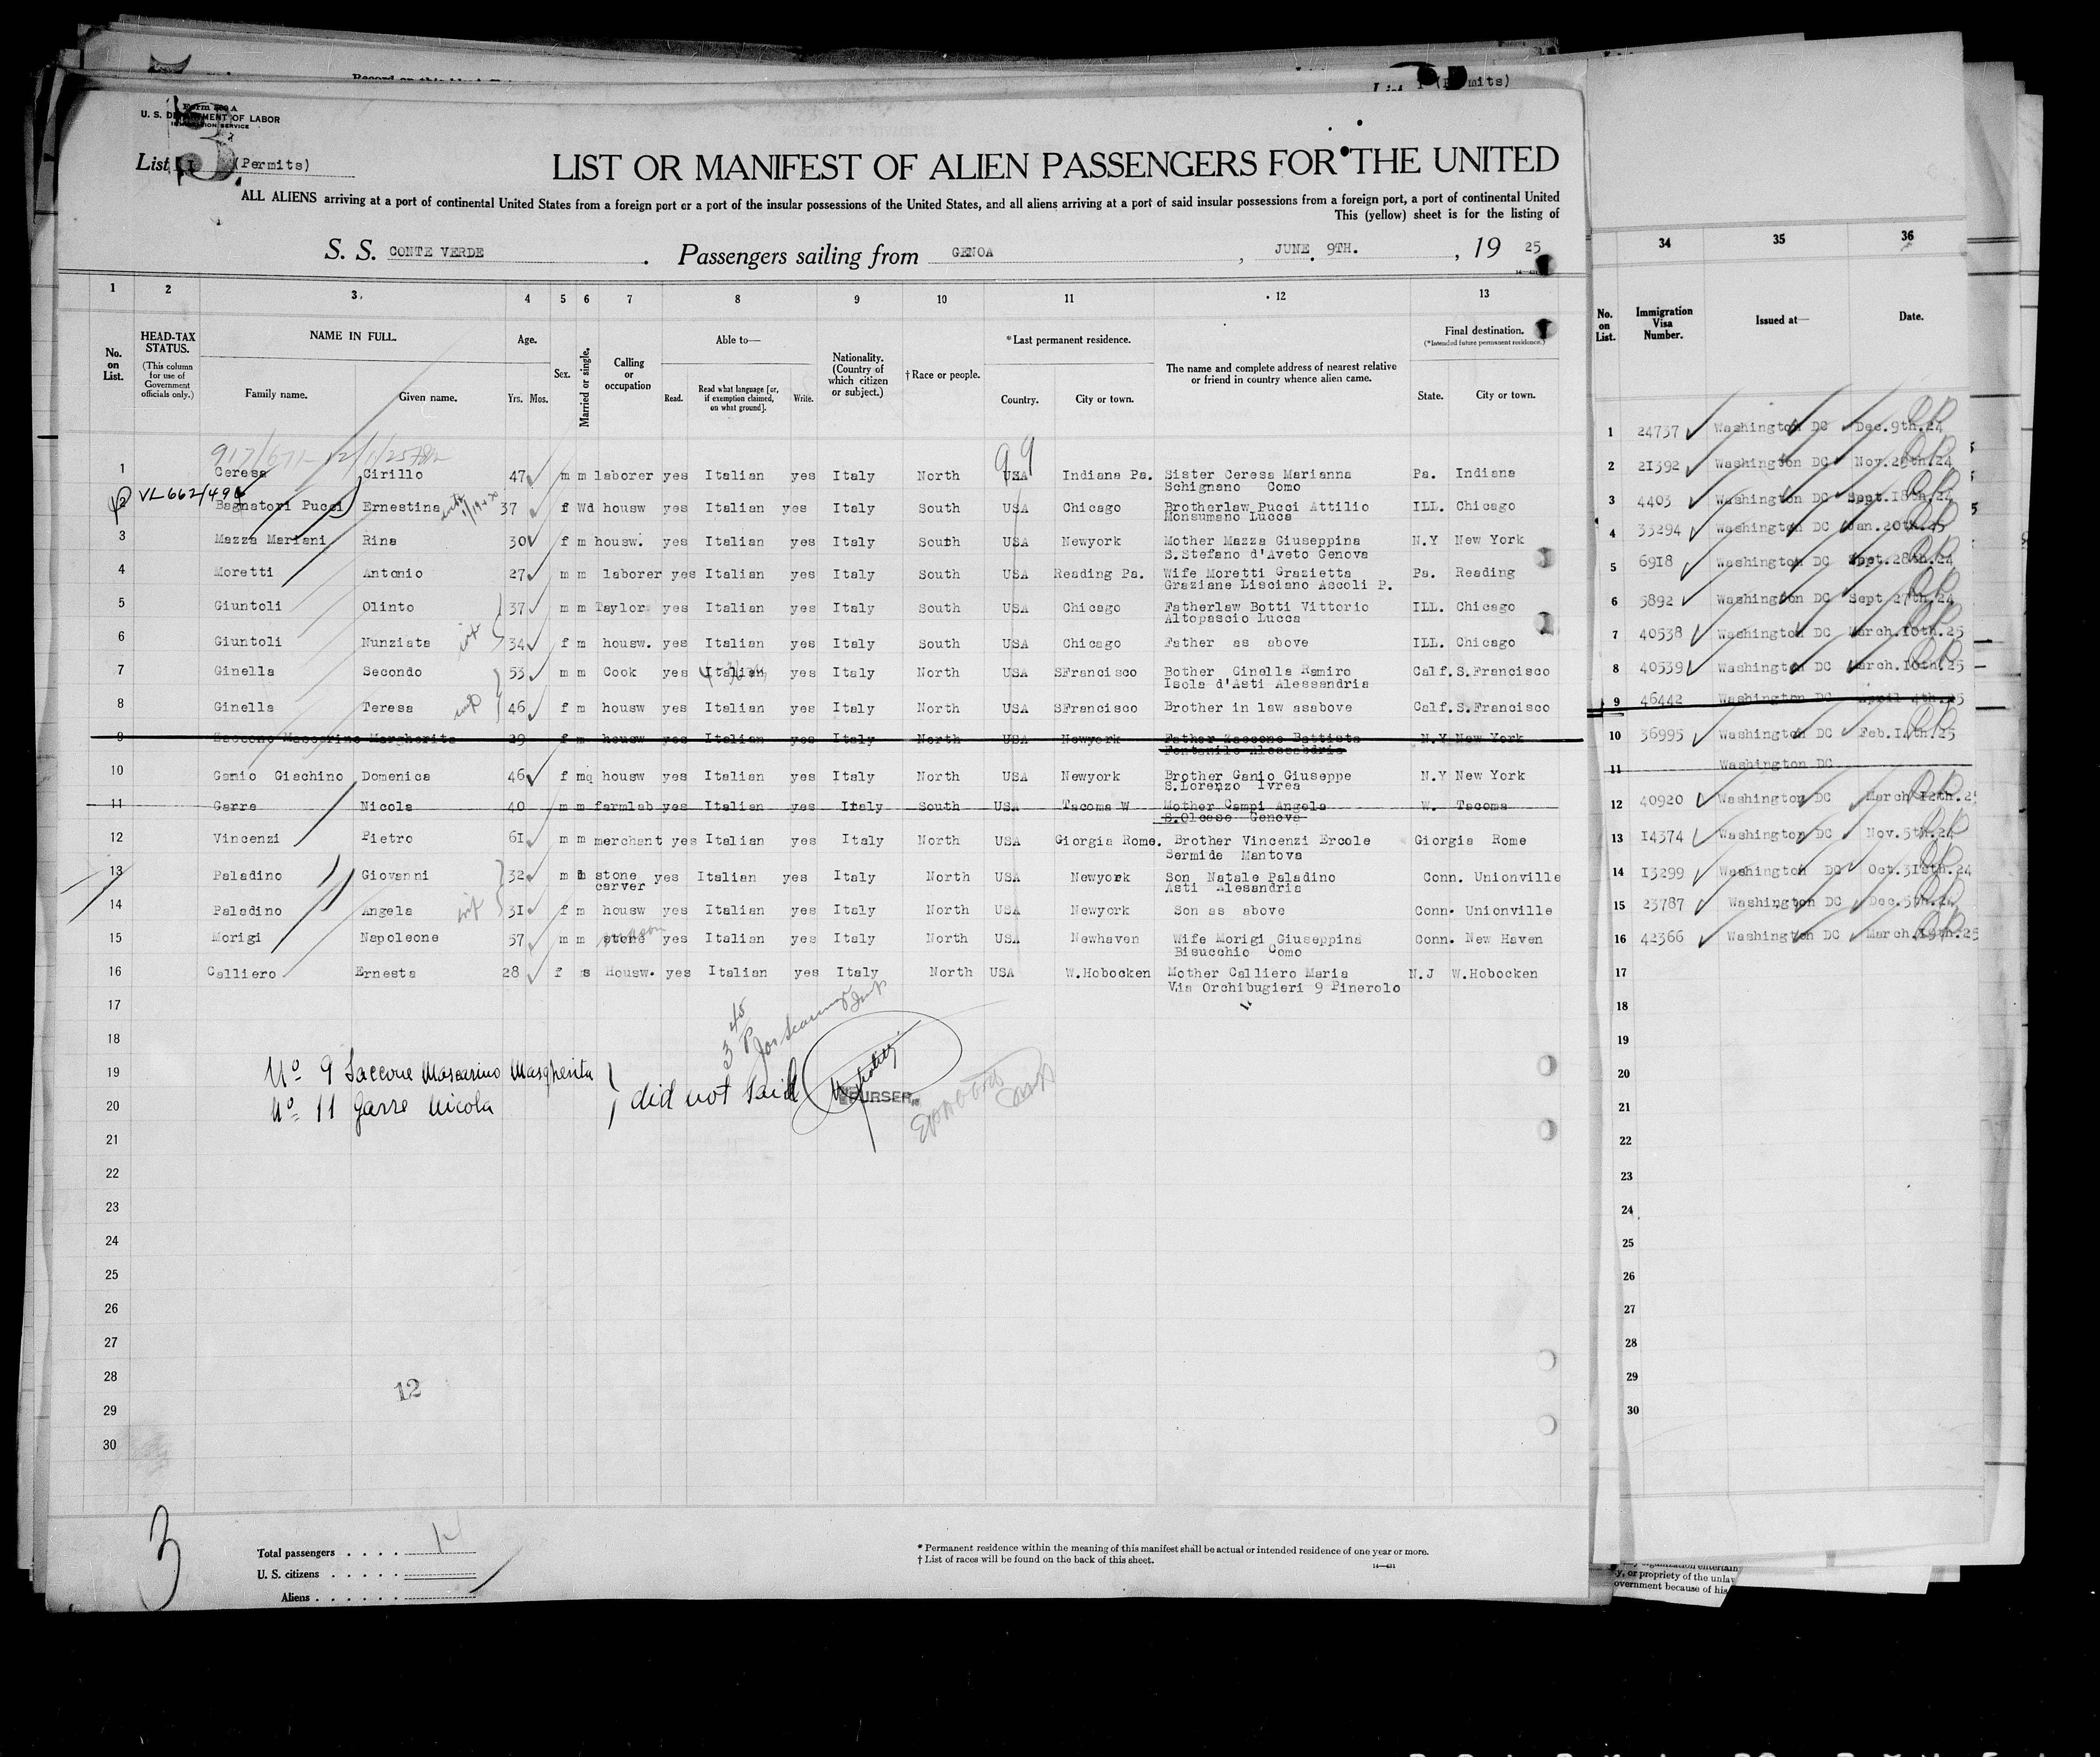 Form 500 A
U. S. DEPARTMENT OF LABOR
IMMIGRATION SERVICE
List (Permits)
LIST OR MANIFEST OF ALIEN PASSENGERS FOR THE UNITED
ALL ALIENS arriving at a port of continental United States from a foreign port or a port of the insular possessions of the United States, and all aliens arriving at a port of said insular possessions from a foreign port, a port of continental United
This (yellow) sheet is for the listing of
S. S. CONTE VERDE. Passengers sailing from GENOA, JUNE 9TH., 19 25
1 2 3 4 5 6 7 8 9 10 11 12 13
No. on List.
HEAD-TAX STATUS.
(This column for use of Government officials only.)
NAME IN FULL.
Family name. Given name.
Age.
Yrs. Mos.
Sex.
Married or single.
Calling or occupation
Able to—
Read. Read what language [or, if exemption claimed, on what ground]. Write.
Nationality. (Country of which citizen or subject.)
† Race or people.
* Last permanent residence.
Country. City or town.
The name and complete address of nearest relative or friend in country whence alien came.
Final destination.
(*Intended future permanent residence.)
State. City or town.
99
1 Ceresa Cirillo 47 m m laborer yes Italian yes Italy North USA Indiana Pa. Sister Ceresa Marianna Pa. Indiana
Schignano Como
VL 662/496
2 Bagnatori Pucci Ernestina 37 f Wd housw yes Italian yes Italy South USA Chicago Brotherlaw Pucci Attilio ILL. Chicago
Monsumano Lucca
3 Mazza Mariani Rina 30 f m housw. yes Italian yes Italy South USA Newyork Mother Mazza Giuseppina N.Y New York
S.Stefano d'Aveto Genova
4 Moretti Antonio 27 m m laborer yes Italian yes Italy South USA Reading Pa. Wife Moretti Grazietta Pa. Reading
Graziane Lisciano Ascoli P.
5 Giuntoli Olinto 37 m m Taylor yes Italian yes Italy South USA Chicago Fatherlaw Botti Vittorio ILL. Chicago
Altopascio Lucca
6 Giuntoli Nunziata 34 f m housw. yes Italian yes Italy South USA Chicago Father as above ILL. Chicago
7 Ginella Secondo 53 m m Cook yes Italian yes Italy North USA SFrancisco Bother Ginella Ramiro Calf.S.Francisco
Isola d'Asti Alessandria
8 Ginella Teresa 46 f m housw yes Italian yes Italy North USA SFrancisco Brother in law asabove Calf.S.Francisco
9 Zaccone Mascarino Margherita 29 f m housw yes Italian yes Italy North USA Newyork Father Zaccone Battista N.Y New York
Fontanile Alessandria
10 Ganio Giachino Domenica 46 f mq housw yes Italian yes Italy North USA Newyork Brother Ganio Giuseppe N.Y New York
S.Lorenzo Ivrea
11 Garre Nicola 40 m m farmlab yes Italian yes Italy South USA Tacoma W Mother Campi Angela W. Tacoma
S.Olcese Genova
12 Vincenzi Pietro 61 m m merchant yes Italian yes Italy North USA Giorgia Rome. Brother Vincenzi Ercole Giorgia Rome
Sermide Mantova
13 Paladino Giovanni 32 m m stone carver yes Italian yes Italy North USA Newyork Son Natale Paladino Conn. Unionville
Asti Alesandria
14 Paladino Angela 31 f m housw yes Italian yes Italy North USA Newyork Son as above Conn. Unionville
15 Morigi Napoleone 57 m m stone mason yes Italian yes Italy North USA Newhaven Wife Morigi Giuseppina Conn. New Haven
Bisucchio Como
16 Calliero Ernesta 28 f s Housw. yes Italian yes Italy North USA W.Hobocken Mother Calliero Maria N.J W.Hobocken
Via Orchibugieri 9 Pinerolo
17
18
19 No 9 Zaccone Mascarino Margherita
20 No 11 Garre Nicola } did not sail
PURSER
21
22
23
24
25
26
27
28
29
30
12
3
Total passengers . . . . 14
U. S. citizens . . . . .
Aliens . . . . . .
* Permanent residence within the meaning of this manifest shall be actual or intended residence of one year or more.
† List of races will be found on the back of this sheet.
14—431
34 35 36
No. on List. Immigration Visa Number. Issued at— Date.
1 24737 Washington DC Dec.9th.24
2 21392 Washington DC Nov.29th.24
3 4403 Washington DC Sept.18th.24
4 33294 Washington DC Jan.20th.25
5 6918 Washington DC Sept.28th.24
6 5892 Washington DC Sept 27th.24
7 40538 Washington DC March.10th.25
8 40539 Washington DC March.10th.25
9 46442 Washington DC April 4th.25
10 36995 Washington DC Feb.14th.25
11 Washington DC
12 40920 Washington DC March 12th.25
13 14374 Washington DC Nov.5th.24
14 13299 Washington DC Oct.31th.24
15 23787 Washington DC Dec.5th.24
16 42366 Washington DC March.19th.25
17
18
19
20
21
22
23
24
25
26
27
28
29
30
y, or propriety of the unlaw
overnment because of his